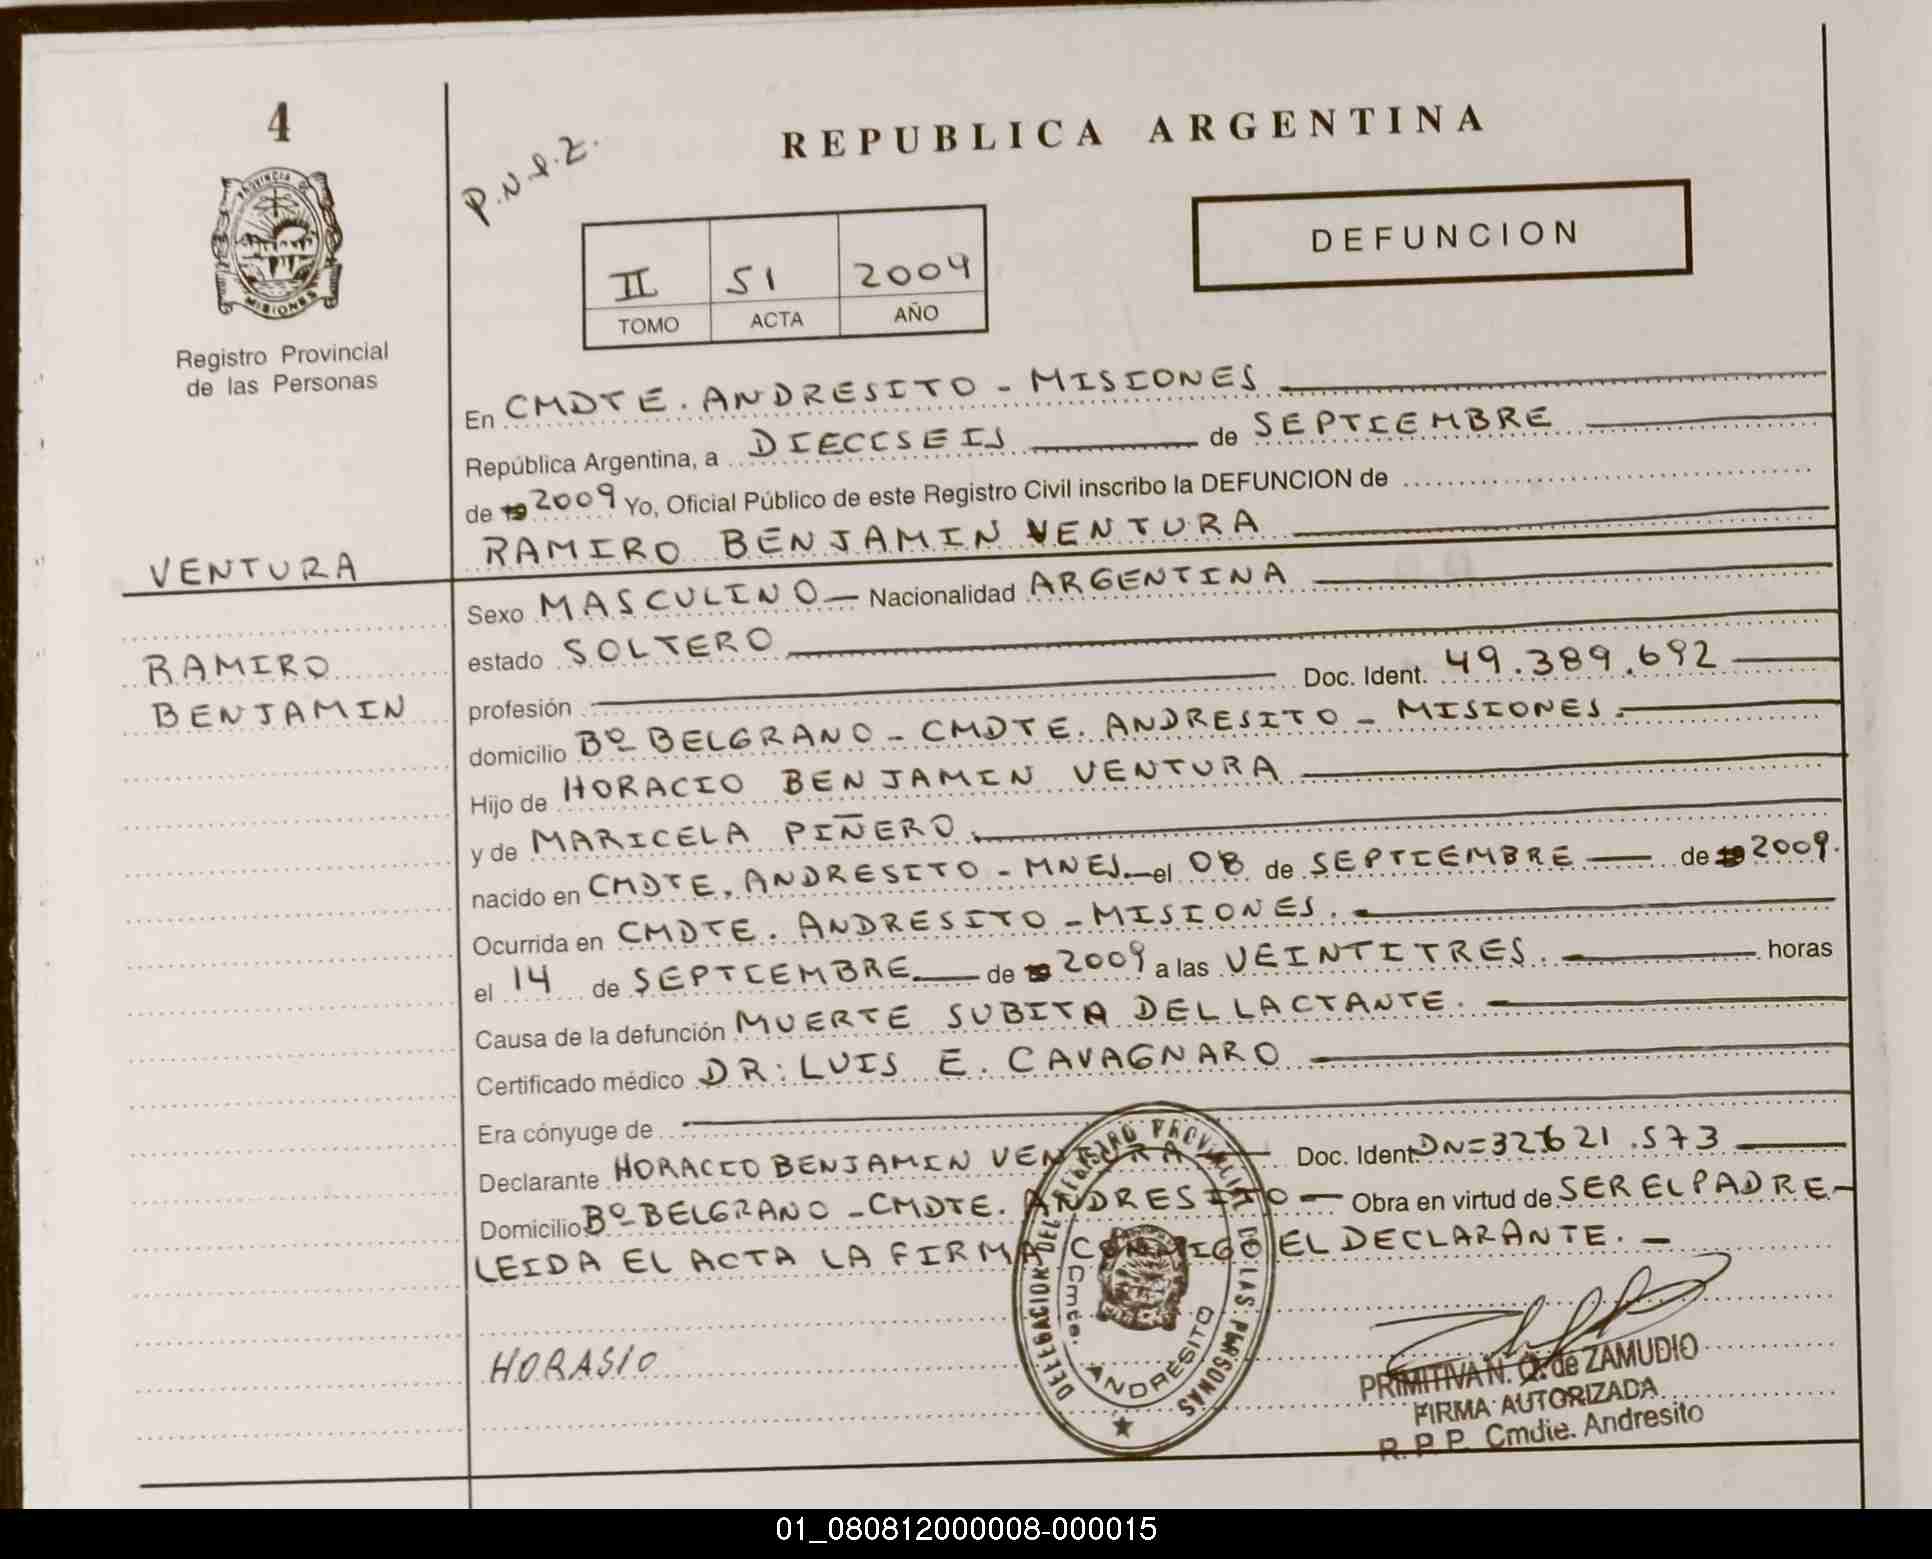 4
P.N.I.Z.
REPUBLICA ARGENTINA
DEFUNCION
II 51 2009
TOMO ACTA AÑO
PROVINCIA DE
MISIONES
Registro Provincial
de las Personas
En CMDTE. ANDRESITO - MISIONES
República Argentina, a DIECISEIS de SEPTIEMBRE
de 19 2009 Yo, Oficial Público de este Registro Civil inscribo la DEFUNCION de
RAMIRO BENJAMIN VENTURA
VENTURA
RAMIRO
BENJAMIN
Sexo MASCULINO Nacionalidad ARGENTINA
estado SOLTERO
profesión Doc. Ident. 49.389.692
domicilio Bº BELGRANO - CMDTE. ANDRESITO - MISIONES.
Hijo de HORACIO BENJAMIN VENTURA
y de MARICELA PIÑERO.
nacido en CMDTE. ANDRESITO - MNES. el 08 de SEPTIEMBRE de 19 2009.
Ocurrida en CMDTE. ANDRESITO - MISIONES.
el 14 de SEPTIEMBRE de 19 2009 a las VEINTITRES. horas
Causa de la defunción MUERTE SUBITA DEL LACTANTE.
Certificado médico DR: LUIS E. CAVAGNARO
Era cónyuge de
Declarante HORACIO BENJAMIN VENTURA Doc. Ident. DN= 32.621.573
Domicilio Bº BELGRANO - CMDTE. ANDRESITO - Obra en virtud de SER EL PADRE -
LEIDA EL ACTA LA FIRMA CONMIGO EL DECLARANTE. -
HORASIO
DELEGACION DEL REGISTRO PROVINCIAL DE LAS PERSONAS
Cmte. ANDRESITO
PRIMITIVA N. Q. de ZAMUDIO
FIRMA AUTORIZADA
R. P. P. Cmdte. Andresito
01_080812000008-000015